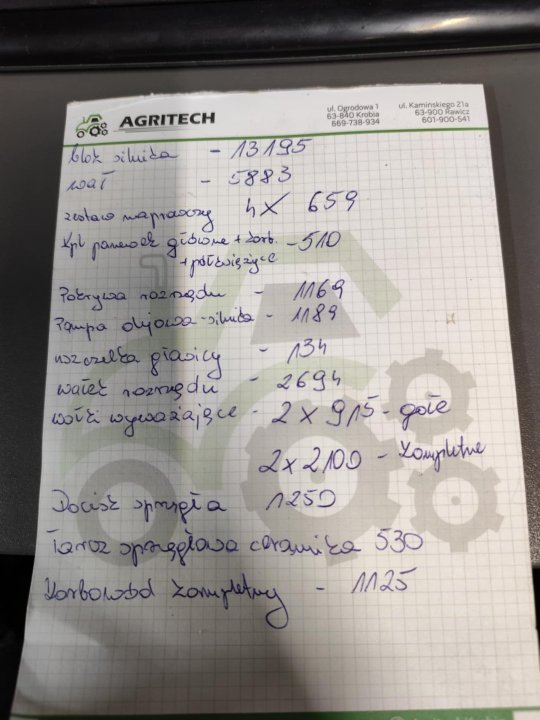 AGRITECH
ul. Ogrodowa 1
63-840 Krobia
669-738-934
ul. Kamińskiego 21a
63-900 Rawicz
601-900-541
blok silnika - 13195
wał - 5883
zestaw naprawczy 4x 659
Kpl panewek główne + korb. - 510
+ półksiężyce
Pokrywa rozrządu - 1169
Pompa olejowa silnika - 1189
uszczelka głowicy - 134
wałek rozrządu - 2694
wałki wyważające - 2 x 915 - gołe
2 x 2100 - kompletne
Docisk sprzęgła 1250
Tarcz sprzęgłowa ceramika 530
Korbowód kompletny - 1125